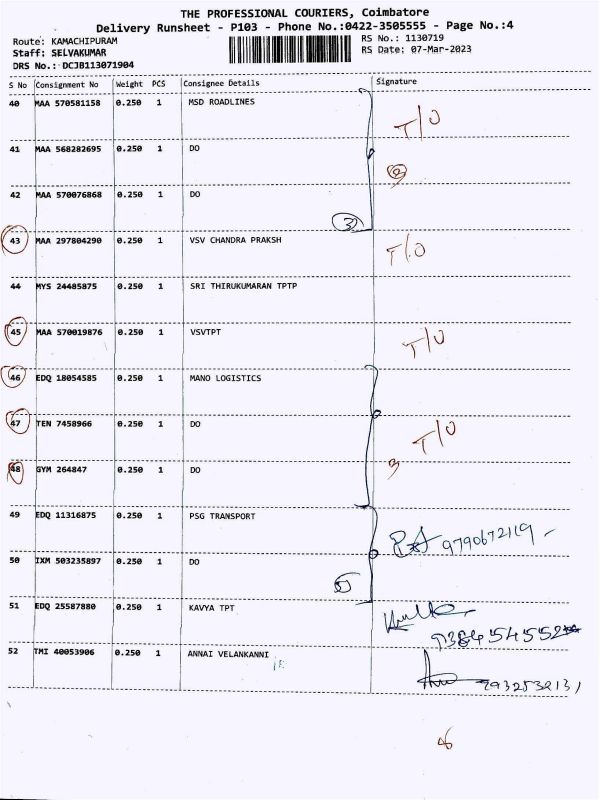 THE PROFESSIONAL COURIERS, Coimbatore
Delivery Runsheet - P103 - Phone No.:0422-3505555 - Page No.:4
Route: KAMACHIPURAM RS No.: 1130719
Staff: SELVAKUMAR RS Date: 07-Mar-2023
DRS No.: DCJB113071904
S No Consignment No Weight PCS Consignee Details Signature
40 MAA 570581158 0.250 1 MSD ROADLINES T/O
41 MAA 568282695 0.250 1 DO 3
42 MAA 570076868 0.250 1 DO 3
43 MAA 297804290 0.250 1 VSV CHANDRA PRAKSH T/O
44 MYS 24485875 0.250 1 SRI THIRUKUMARAN TPTP
45 MAA 570019876 0.250 1 VSVTPT T/O
46 EDQ 18054585 0.250 1 MANO LOGISTICS
47 TEN 7458966 0.250 1 DO T/O
48 GYM 264847 0.250 1 DO 3
49 EDQ 11316875 0.250 1 PSG TRANSPORT 9790672119
50 IXM 503235897 0.250 1 DO
51 EDQ 25587880 0.250 1 KAVYA TPT
52 TMI 40053906 0.250 1 ANNAI VELANKANNI